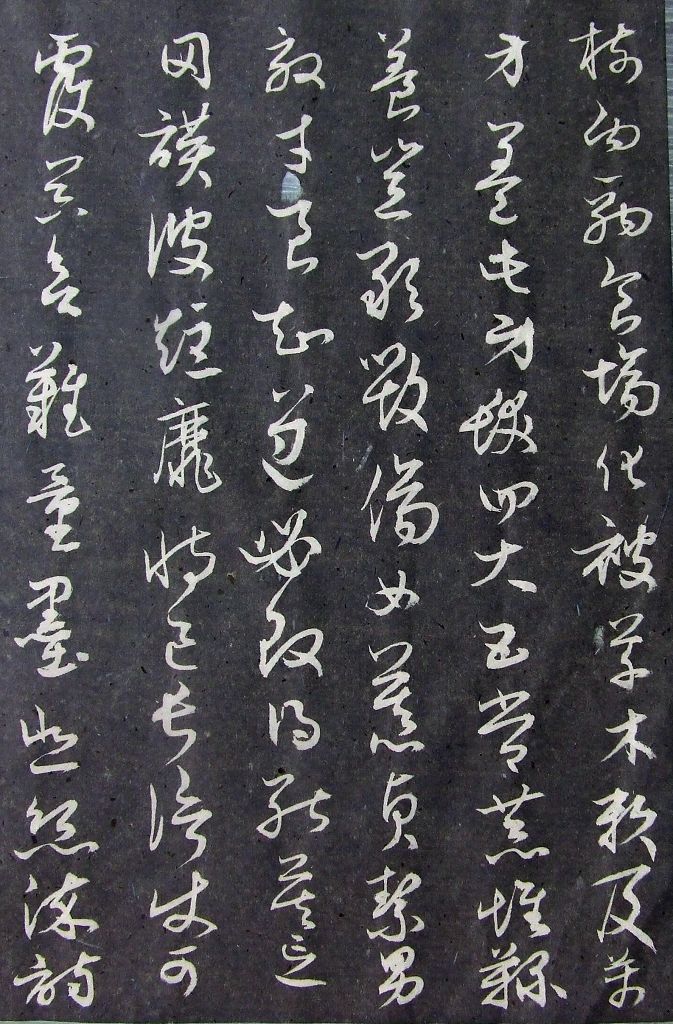 樹白駒食場化被草木賴及萬
方蓋此身髮四大五常恭惟鞠
養豈敢毀傷女慕貞絜男
效才良知過必改得能莫忘
罔談彼短靡恃己長信使可
覆器欲難量墨悲絲染詩